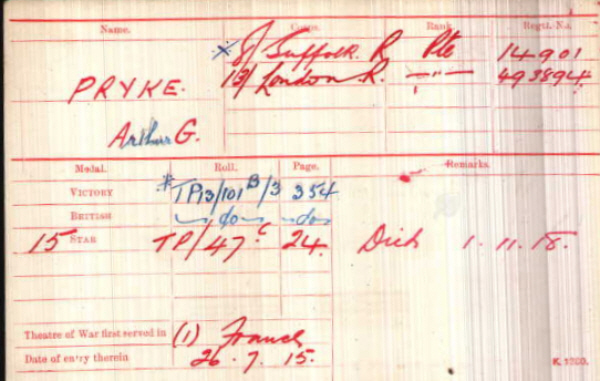 Name. Corps. Rank. Regtl. No.
* 8/ Suffolk. R Pte 14901
PRYKE. 13/ London. R. —"— 493894
Arthur G.
Medal. Roll. Page. Remarks.
VICTORY * TP13/101 B/3 354
BRITISH —do— —do—
15 STAR TP/47 C 24. Died 1. 11. 18.
Theatre of War first served in (1) France
Date of entry therein 26. 7. 15. K. 1380.